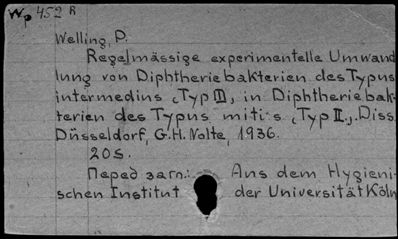 Wp 452 R
Welling, P.
Regelmässige experimentelle Umwand
lung von Diphtheriebakterien des Typus
intermedius (Typ III), in Diphtheriebak-
terien des Typus mitis (Typ II). Diss.
Düsseldorf, G.H. Nolte, 1936.
20 S.
Перед загл.: Aus dem Hygieni-
schen Institut der Universität Köln